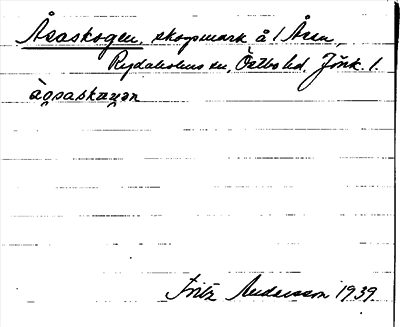 Åsaskogen, skogsmark å 1 Åsen,
Rydaholms sn, Östbo hd. Jönk. l.
ào̯saskæu̯ən
Fritz Andersson 1939.